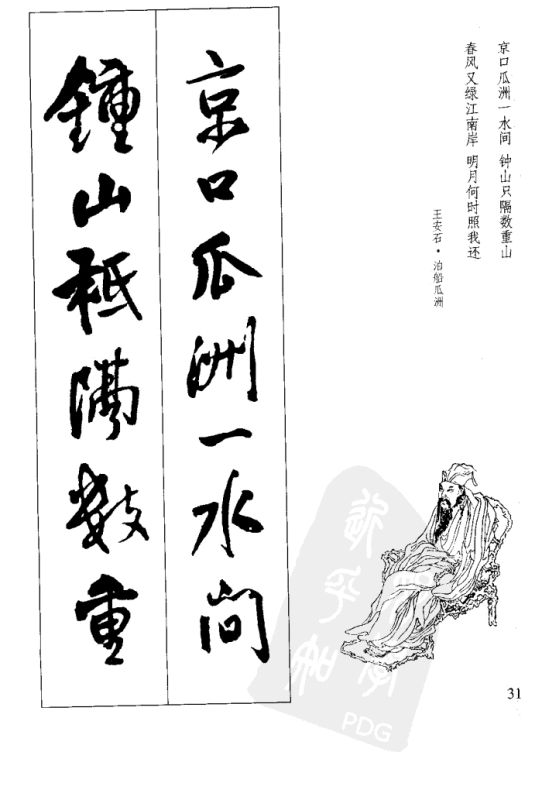 京口瓜洲一水间 钟山只隔数重山
春风又绿江南岸 明月何时照我还
王安石·泊船瓜洲
京口瓜洲一水间
鍾山秖隔数重
31
PDG